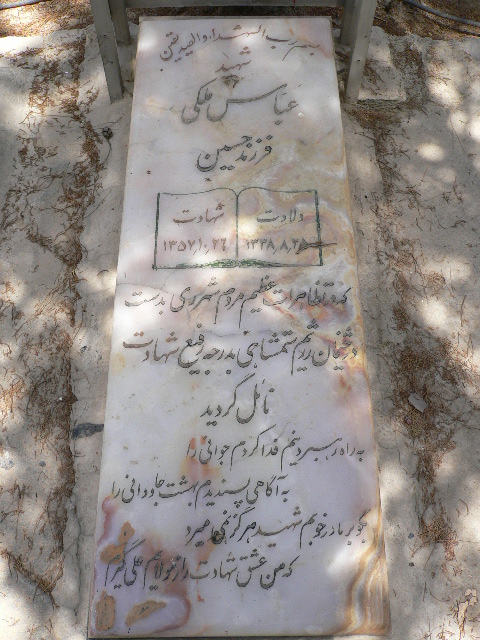 بسم رب الشهداء والصدیقین
شهید
عباس ملکی
فرزند حسین
ولادت شهادت
۱۳۳۸.۸.۲۵ ۱۳۵۷.۱۰.۲۶
که در تظاهرات عظیم مردم شهرری بدست
دژخیمان رژیم ستمشاهی بدرجه رفیع شهادت
نائل گردید
به راه رهبر دینم فدا کردم جوانی را
به آگاهی پسندیدم بهشت جاودانی را
بگو بر مادر خوبم شهید هرگز نمی میرد
که من عشق شهادت را ز مولایم علی گیرم